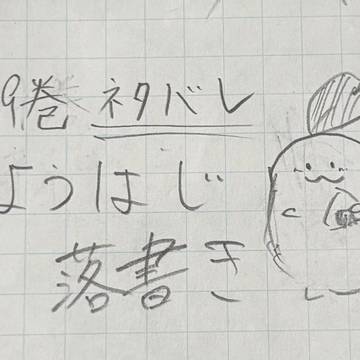 9巻 ネタバレ
ようはじ
落書き